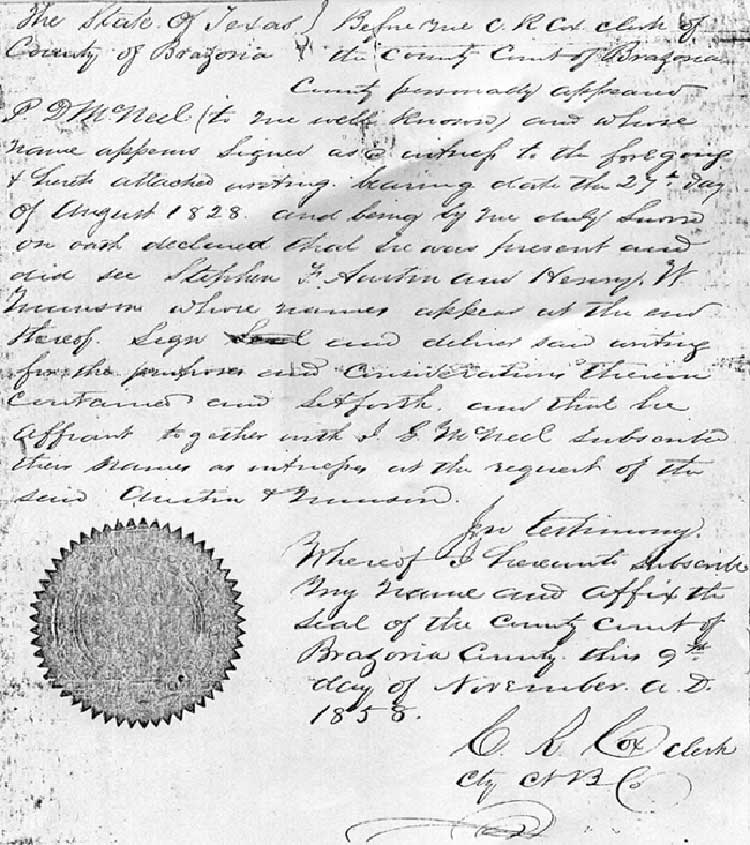 The State of Texas } Before me C. R. Cox clerk of
County of Brazoria } the County Court of Brazoria
County personally appeared
P D McNeel (to me well known) and whose
name appears signed as a witness to the foregoing
& hereto attached writing. bearing date the 27th day
of August 1828. and being by me duly sworn
on oath declared that he was present and
did see Stephen F. Austin and Henry W
Munson whose names appear at the end
thereof. sign and deliver said writing
for the purposes and considerations therein
contained and setforth. and that he
affiant together with J. G. McNeel subscribed
their names as witnesses at the request of the
said Austin & Munson.
In testimony.
Whereof I hereunto subscribe
my name and affix the
seal of the County Court of
Brazoria County. this 9th
day of November. A. D.
1858.
C. R. Cox clerk
Cty Ct B Co